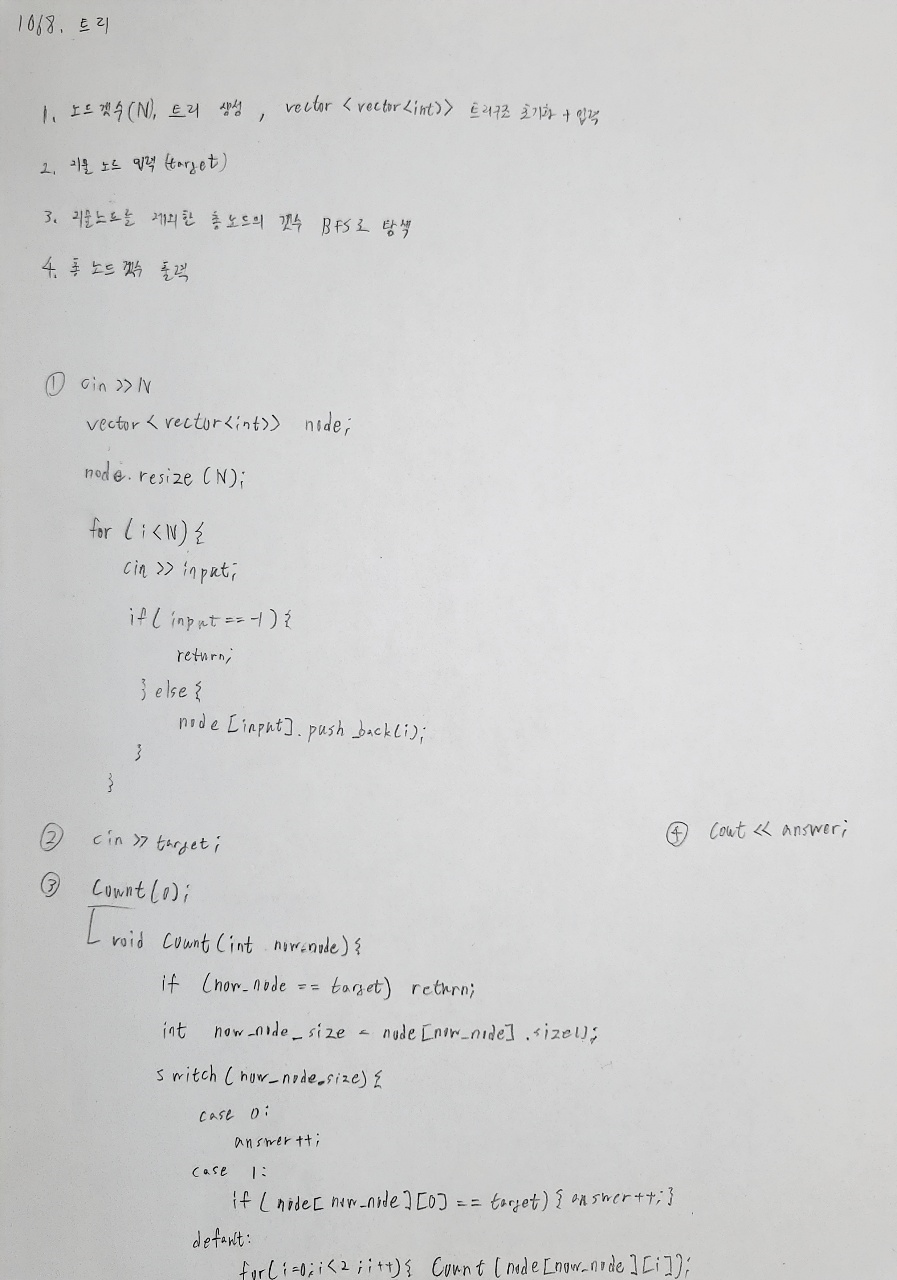 1068. 트리
1. 노드갯수(N), 트리 생성, vector <vector<int>> 트리구조 초기화 + 입력
2. 지울 노드 입력 (target)
3. 지울노드를 제외한 총 노드의 갯수 BFS로 탐색
4. 총 노드 갯수 출력
① cin >> N
vector < vector<int>> node;
node.resize (N);
for (i<N) {
cin >> input;
if( input == -1) {
return;
} else {
node [input]. push_back(i);
}
}
② cin >> target;
④ cout << answer;
③ Count(0);
void Count(int now_node) {
if (now_node == target) return;
int now_node_size = node[now_node].size();
switch (now_node_size) {
case 0:
answer++;
case 1:
if (node[now_node][0] == target) { answer++; }
default:
for(i=0; i<2; i++) { Count (node[now_node][i]);